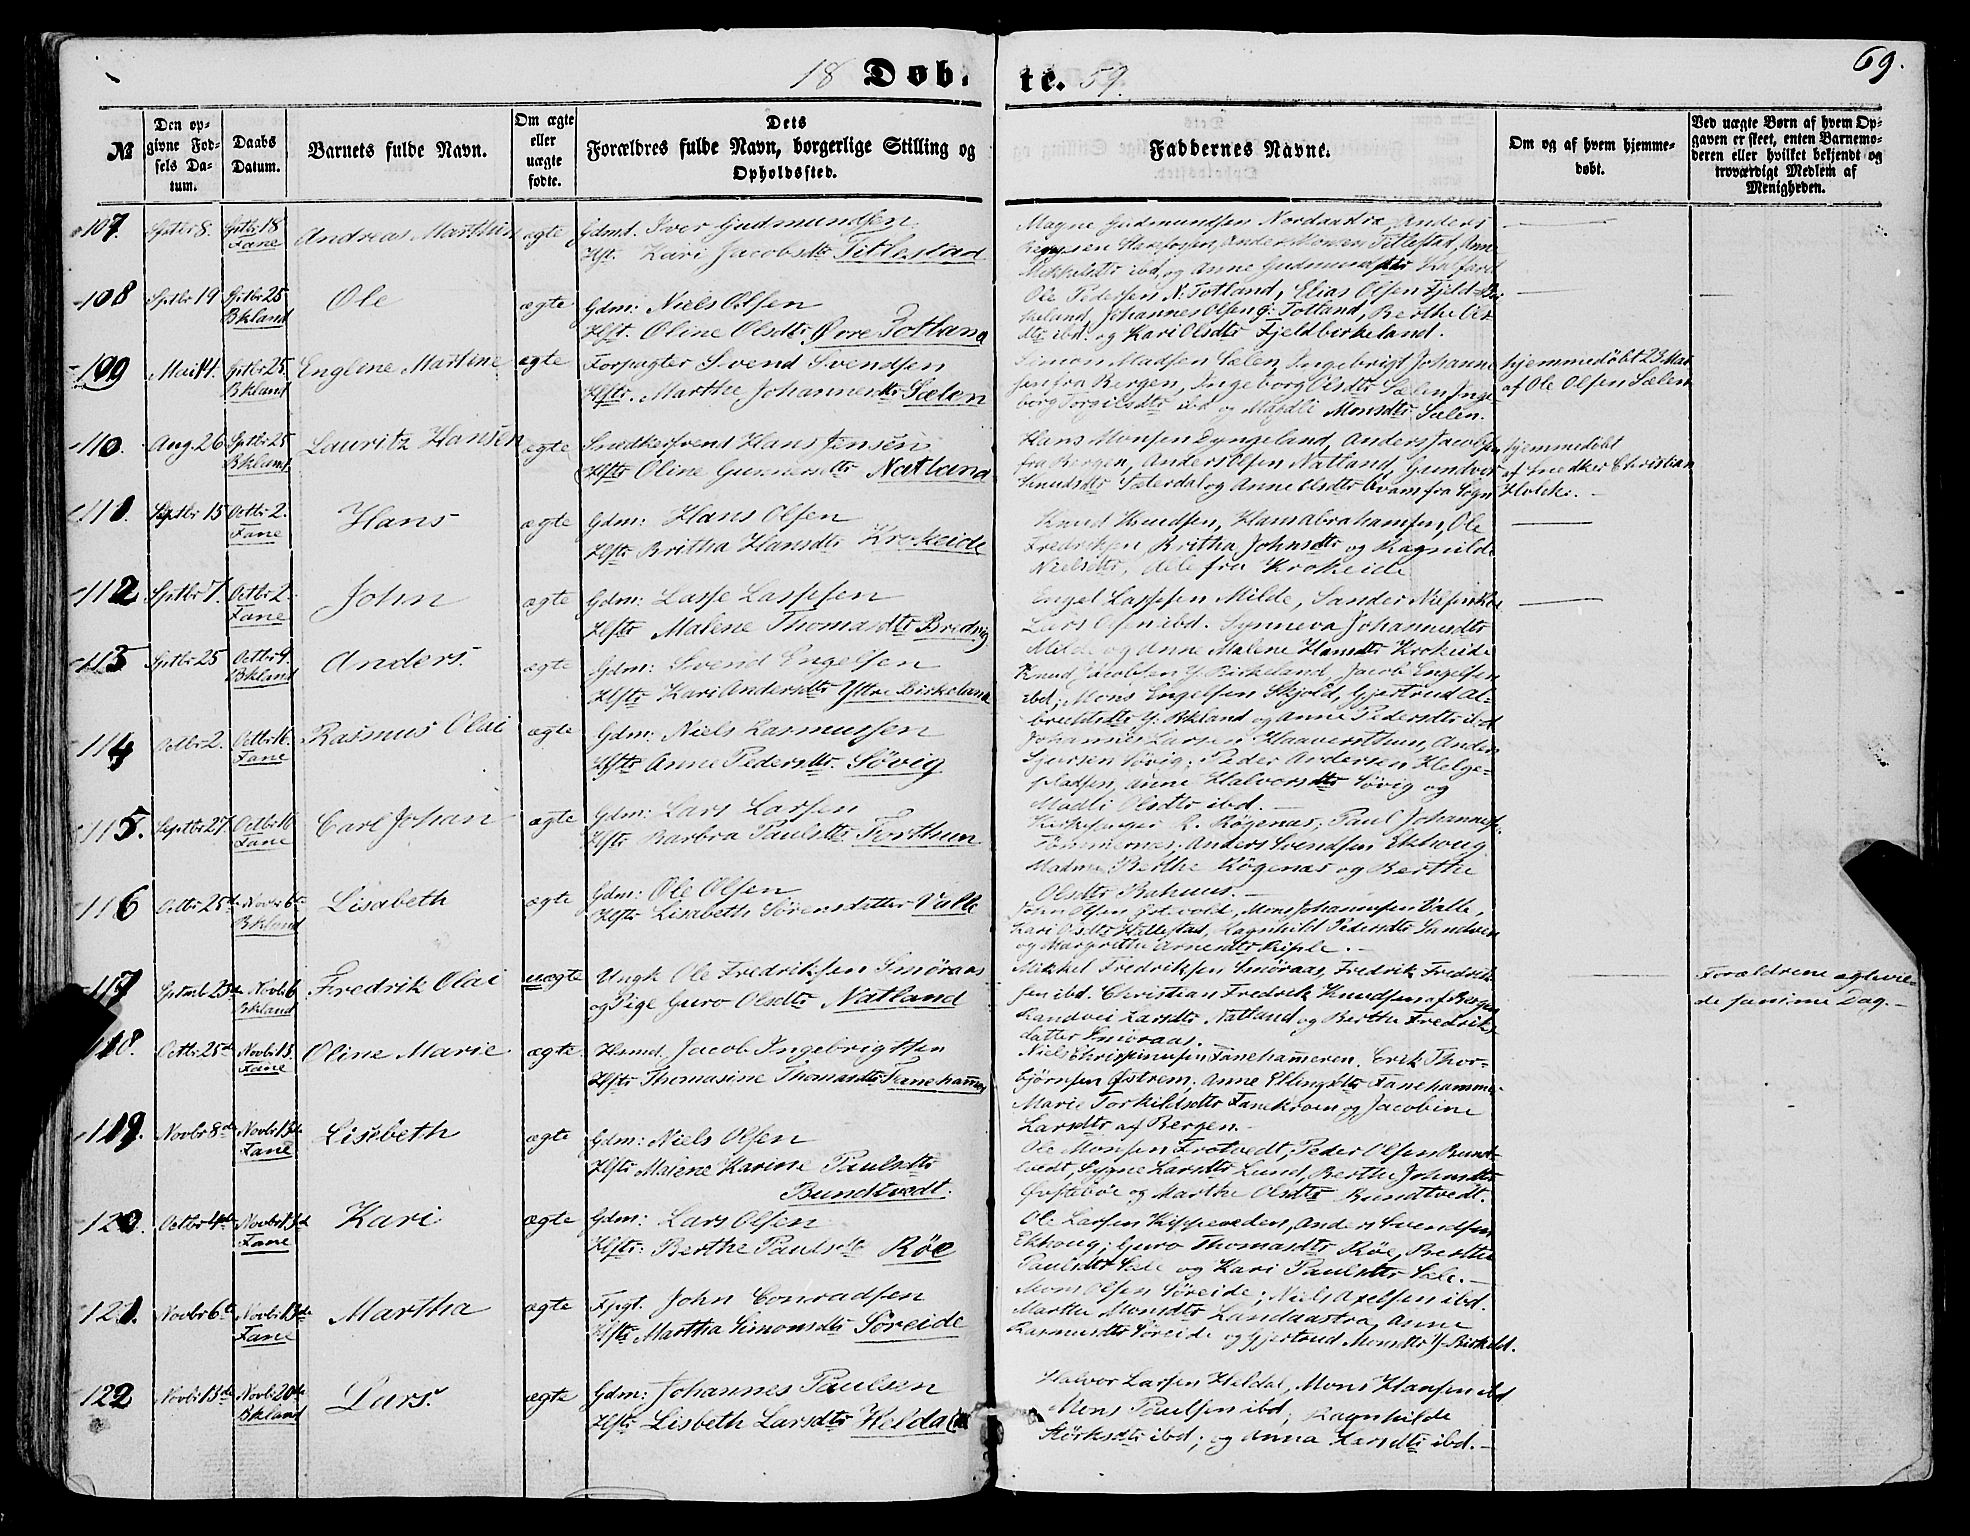 18 Døb- te. 59.
69.
№
Den opgivne Fødsels Datum.
Daabs Datum.
Barnets fulde Navn.
Om ægte eller uægte fødte.
Dets Forældres fulde Navn, borgerlige Stilling og Opholdssted.
Faddernes Navne.
Om og af hvem hjemmedøbt.
Ved uægte Børn af hvem Opgaven er skeet, enten Barnemoderen eller hvilket bekjendt og troværdigt Medlem af Menigheden.
107. Sptbr 8. Sptbr 18 Fane Andreas Marthin ægte Gdmd. Iver Gudmundsen
Hst. Kari Jacobsdtr Titlestad
Magne Gudmundsen Nordaastræ, Anders
Anders Monsen Titlestad, Anne
Mikkelsdtr ibd. og Anne Gudmundsdtr Kalfaret
108 Sptbr 19 Sptbr 25 Bkland Ole ægte Gdm: Niels Olsen
Hst. Oline Olsdtr. Øvre Totland
Ole Pedersen N. Totland, Elias Olsen Fjeld-Bir
keland, Johannes Olsen Ø: Totland, Berthe Ols
dtr ibd. og Kari Olsdtr Fjeldbirkeland.
109 Mai 14. Sptbr 25. Bkland Englene Martine ægte Forpagter Svend Svendsen
Hstr. Marthe Johannesdtr Sælen
Simon Madsen Sælen, Ingebrigt Johanne
sen fra Bergen, Ingeborg Olsdtr Sælen, Inge
borg Torgilsdtr ibd og Madli Monsdtr Sælen.
hjemmedøbt 23 Mai
af Ole Olsen Sælen
110. Aug. 26 Sptbr 25 Bkland Lauritz Hansen ægte Snedkersvend Hans Jensen
Hstr Oline Gunnersdtr Natland
Hans Monsen Dyngeland, Anders Jacobsen
fra Bergen, Anders Olsen Natland, Gundvor
Knudsdtr Sæterdal og Anne Olsdtr Kvam fra Sogn
hjemmedøbt
af Snedker Christian
Holck. -
111. Sptbr 15 Octbr 2. Fane Hans ægte Gdm: Hans Olsen
Hstr Britha Hansdtr Krokeide
Knud Knudsen, Hans Abrahamsen, Ole
Fredriksen, Britha Johnsdtr og Ragnilde
Nielsdtr, alle fra Krokeide
112 Sptbr 7. Octbr 2. Fane John ægte Gdm: Lasse Lassesen
Hstr Malene Thomasdtr Bredvig
Engel Lassesen Milde, Sander Nilsen
Lars Olsen ibd. Synneva Johannesdtr
Milde og Anne Malene Hansdtr Krokeide
113 Sptbr 25 Octbr 9. Bkland Anders. ægte Gdm: Svend Engelsen
Hstr Kari Andersdtr Yttre Birkeland
Knud Jacobsen Y. Birkeland, Jacob Engelsen
ibd; Mons Engelsen Skjold, Gjertrud Al
brechtsdtr Y. Bkland og Anne Pedersdtr ibd
114 Octbr 2. Octbr 16. Fane Rasmus Olai ægte Gdm: Niels Rasmussen
Hstr Anne Pedersdtr. Søvig
Johannes Larsen Haaversthun, Anders
Sjursen Søvig; Peder Andersen Helge-
pladsen, Anne Halvorsdtr Søvig og
Madli Olsdtr ibd. -
115. Septbr 27. Octbr 16 Fane Carl Johan ægte Gdm: Lars Larsen
Hstr Barbra Paulsdtr Forthun
Kirkesanger R. Røgenæs; Paul Johannes.
Tømmernæs; Anders Svendsen Ekhoug
Madme Berthe Røgenæs og Berthe
Olsdtr Bahuus. -
116 Octbr 25de Novbr 6te Bkland Lisabeth ægte Gdm: Ole Olsen
Hstr Lisabeth Sørensdatter Valle
John Olsen Østvold, Mons Johannessen Valle,
Kari Olsdtr Hallestad, Ragnhild Pedersdtr Sandven
og Margrethe Arnesdtr Riple. -
117 Sptmb 23de Novbr 6 Bkland Fredrik Olai uægte Ungk Ole Fredriksen Smøraas
og Pige Guro Olsdtr Natland
Mikkel Fredriksen Smøraas, Fredrik Fredrik
sen ibd. Christian Fredrik Knudsen af Bergen
Randvei Larsdtr Natland og Berthe Fredriks-
datter Smøraas. -
Forældrene ægtevie
de samme Dag. -
118. Octbr 25de Novbr 13. Fane Oline Marie ægte Hsmd. Jacob Ingebrigtsen
Hstr Thomasine Thomasdtr Fanehammer
Niels Chrispinusen Fanehammeren. Erik Thor-
bjørnsen Østrem; Anne Ellingsdtr Fanehamme
Marie Torkildsdtr Fanekroen og Jacobine
Larsdtr af Bergen. -
119. Novbr 8de Novbr 13de Fane Lisebeth ægte Gdm: Niels Olsen
Hstr Malene Karine Paulsdtr
Bundtvedt.
Ole Monsen Frotvedt; Peder Olsen Bundt
vedt, Sygne Larsdtr Lund, Berthe Johansdtr
Øvstebøe og Marthe Olsdtr Bundtvedt.
120. Octbr 4de Novbr 13de Fane Kari ægte Gdm: Lars Olsen
Hstr: Berthe Paulsdtr Røe
Ole Larsen Kippeveden, Anders Svendsen
Ekhoug; Guro Thomasdtr Røe, Berthe
Paulsdtr Sæle og Kari Paulsdtr Sæle. -
121. Novbr 6te Novbr 13de Fane Martha ægte Fpgt. John Conradsen
Hstr Martha Simonsdtr Søreide
Mons Olsen Søreide; Niels Axelsen ibd.
Marthe Monsdtr Landaastræ, Anne
Rasmusdtr Søreide og Gjertrud Monsdtr Y Birkeld.
122 Novbr 13de Novbr 20de Bkland Lars. ægte Gdm: Johannes Paulsen
Hstr Lisbeth Larsdtr Heldal
Halvor Larsen Heldal, Mons Hansen ibd
Mons Paulsen ibd; Ragnhilde
Størksdtr ibd; og Anna Larsdtr ibd. -